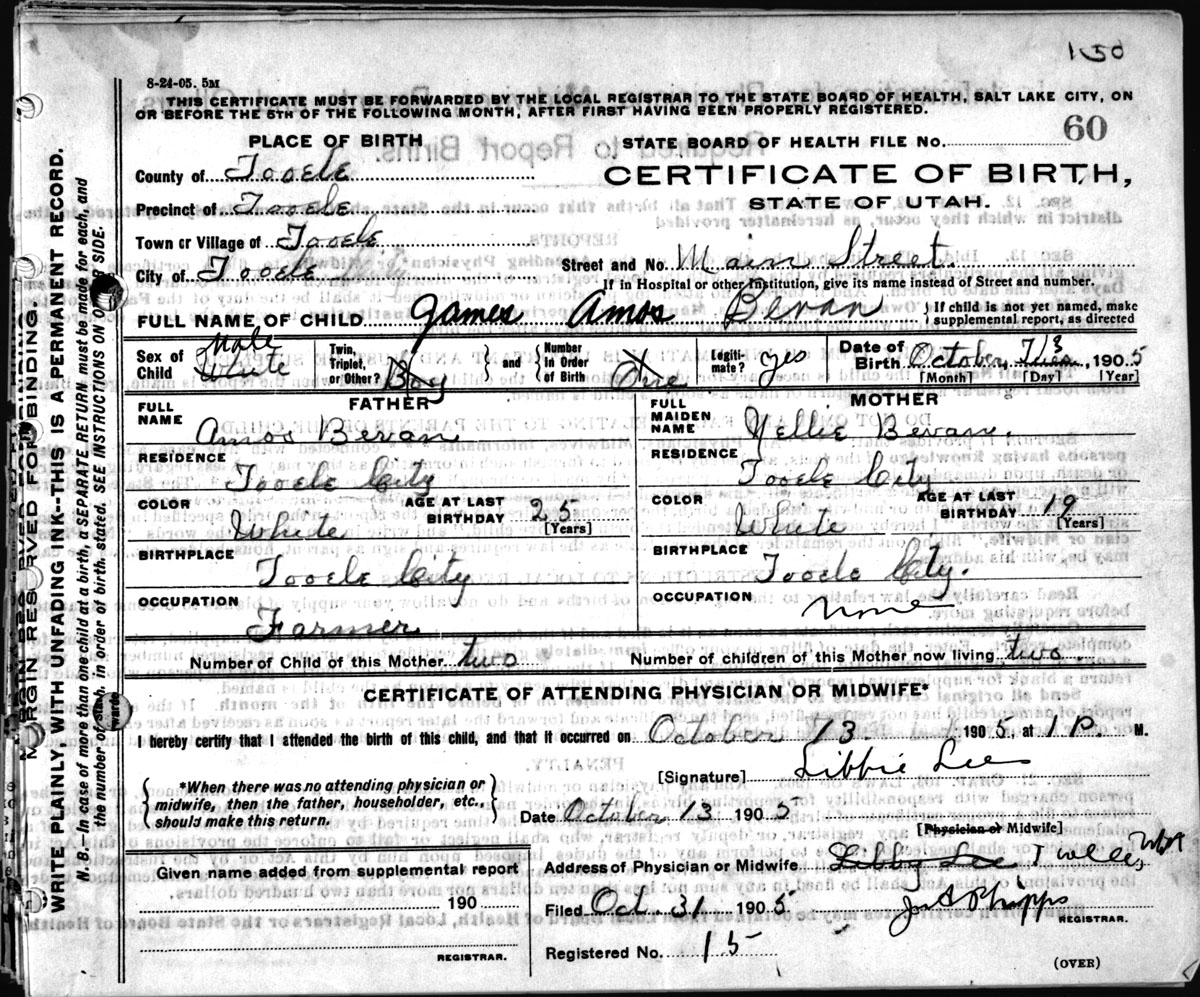 150
8-24-05. 5M
THIS CERTIFICATE MUST BE FORWARDED BY THE LOCAL REGISTRAR TO THE STATE BOARD OF HEALTH, SALT LAKE CITY, ON
OR BEFORE THE 5TH OF THE FOLLOWING MONTH, AFTER FIRST HAVING BEEN PROPERLY REGISTERED.
60
PLACE OF BIRTH
STATE BOARD OF HEALTH FILE NO.
County of Tooele
CERTIFICATE OF BIRTH,
Precinct of Tooele
STATE OF UTAH.
Town or Village of Tooele
City of Tooele
Street and No. Main Street
If in Hospital or other Institution, give its name instead of Street and number.
FULL NAME OF CHILD James Amos Bevan
If child is not yet named, make
supplemental report, as directed
Sex of Child Male White
Twin, Triplet, or Other? Boy
and Number In Order of Birth One
Legitimate? yes
Date of Birth October, 13 1905
[Month] [Day] [Year]
FATHER
FULL NAME Amos Bevan
RESIDENCE Tooele City
COLOR White
AGE AT LAST BIRTHDAY 25 [Years]
BIRTHPLACE Tooele City
OCCUPATION Farmer
MOTHER
FULL MAIDEN NAME Nellie Bevan.
RESIDENCE Tooele City
COLOR White
AGE AT LAST BIRTHDAY 19 [Years]
BIRTHPLACE Tooele City.
OCCUPATION None
Number of Child of this Mother two
Number of children of this Mother now living two
CERTIFICATE OF ATTENDING PHYSICIAN OR MIDWIFE*
I hereby certify that I attended the birth of this child, and that it occurred on October 13 1905, at 1 P M.
[Signature] Libbie Lee
*When there was no attending physician or
midwife, then the father, householder, etc.,
should make this return.
Date October 13 1905
[Physician or Midwife]
Given name added from supplemental report
190
REGISTRAR.
Address of Physician or Midwife Libby Lee Tooele, Utah
Filed Oct. 31 1905 Jno A Phipps
REGISTRAR.
Registered No. 15
(OVER)
MARGIN RESERVED FOR BINDING
WRITE PLAINLY, WITH UNFADING INK--THIS IS A PERMANENT RECORD.
N. B.—In case of more than one child at a birth, a SEPARATE RETURN must be made for each, and
the number of each, in order of birth, stated. SEE INSTRUCTIONS ON OTHER SIDE.